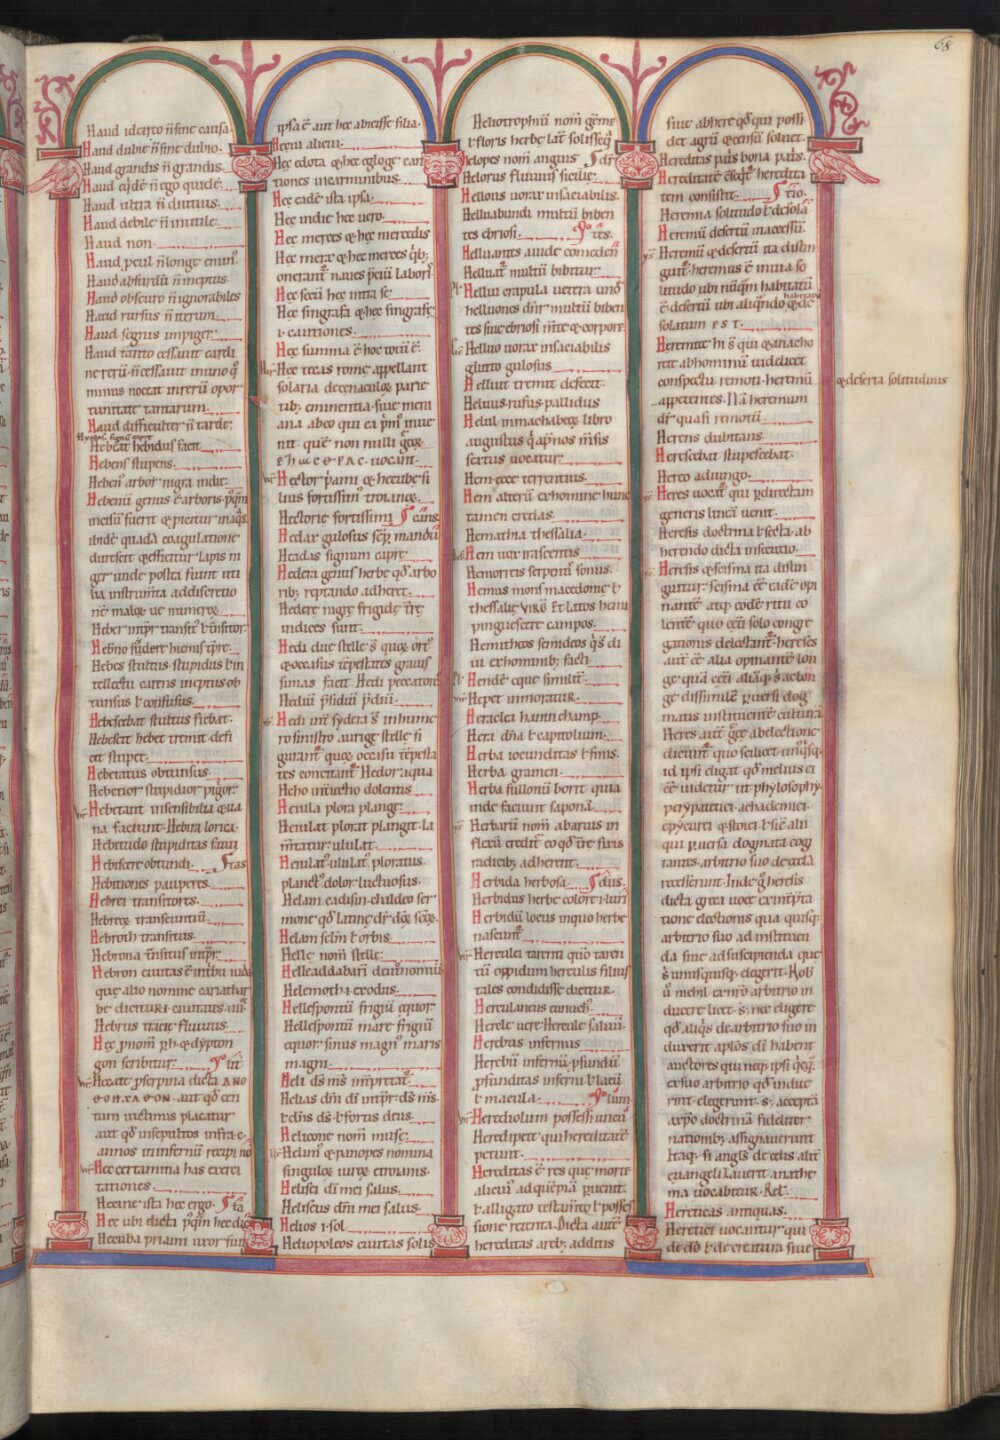 68
Haud idcirco ñ sine causa.
Haud dubie ñ sine dubio.
Haud grandis ñ grandis.
Haud eqdē ñ ego quidē.
Haud ultra ñ diutius.
Haud debile ñ inutile.
Haud non.
Haud pcul ñ longe
Haud absurdū ñ ineptus.
Haud obscuro ñ ignorabiles
Haud rursus ñ iterum.
Haud segnis impiger.
Haud tanto cessauit cardi
ne rerū. ñ cessauit
minus noceat in rerū opor
tunitate tantarum.
Haud difficulter ñ tarde.
Hebeat hebidus facit.
Hebens stupens.
Heben arbor nigra indic.
Hebenū genus ē arboris
incisū fuerit
ibidē quadā coagulatione
durescit & efficitur lapis ni
ger unde postea fiunt uti
lia instrumta ad discretio
nē
Heber intpr transit t transitor.
Hebes stultus. stupidus t in
tellectu carens ineptus ob
tunsus t confusus.
Hebescebat stultus fiebat.
Hebescit hebet tremit defi
cit stupet.
Hebetatus obtunsus.
Hebetior stupidior pigor.
Hebetant insensibilia & ua
na faciunt. Hebita lorica.
Hebitudo stupiditas
Hebiscere obtundi. tas
Hebitiones pauperes.
Hebrei transitores.
Hebreę transeuntiū.
Hebroth transitus.
Hebrona transitus intpr.
Hebron ciuitas ē in tribu iuda
quę alio nomine cariathar
be dicitur. i. ciuitates
Hebrus tracię fluuius.
Hęc pnom p h & dypton
gon scribitur.
Hecate pserpina dicta
aut qd cen
tum uictimis placatur
aut qd insepultos infra .c.
annos in infernū recipi no
Hec certamina has exerci
tationes.
Hecine ista hec ergo. ta
Hec ubi dicta pqm hec dic
Hecuba priami uxor
ipsa ē aut hec abiecisse filia.
Hecui alicui.
Hęc edota & hęc eglogę can
tiones in carminibus.
Hęc eadē ista ipsa.
Hęc indie hęc uero.
Hęc merces & hęc mercedis
Hęc merx & hęc merces qb;
onerant naues
Hęc secū hęc intra se.
Hęc singrafa & hęc singrafę
.i. cautiones.
Hęc summa ē hoc totū ē.
Hęc tecas rome appellant
solaria
tib; eminentia siue meni
ana abeo qui ea pm inue
nit. que non nulli gręce
uocant.
Hector pami & hecube fi
lius fortissim troianę.
Hectorię fortissimi cans.
Hedax gulosus semp manduc
Headas signum caprę.
Hedera genus herbę qd arbo
rib; reptando adheret.
Hederę nigrę frigidę terrę
indices sunt.
Hedi due stellę s quoz ort
& occasus tēpestates grauis
simas facit. Hedi peccatores
Hediū psidiū pdiū.
Hedi int sydera s in hume
ro sinistro aurigę stellę si
gurant quoz occasu tēpesta
tes concitant Hedor. i qua
Heho intiecto dolentis
Heiula plora plange.
Heiulat plorat plangit. la
mtatur. ululat.
Heiulat ululat ploratus.
planct dolor luctuosus.
Helam. eadisin. chaldeo ser
mone qd latine dr
Helam sclm t orbis.
Helle nom stelle.
Helleaddabari deutronomiū
Helemoth .i. exodus.
Hellespontū frigiū equor.
Hellespontū mare frigiū
equor. sinus magn maris
magni.
Heli ds ms intpretat.
Helias dni dm intpr. ds ms.
t dns ds. t fortis deus.
Helicone nom musę.
Helim & panopes nomina
singulę
Helisei di mei salus.
Heliseus dni mei salus.
Helios .i. sol
Heliopoleos ciuitas solis
Heliotrophiū nom gēmę
t floris herbę lat solisseq
Helopes nom anguis
Helorus fluuius sicilię.
Helluus uorax insaciabilis.
Helluabundi multū biben
tes ebriosi. tes.
Helluantes auide comeden
Helluat multū bibitur.
Hellui crapula uetera und
helluones dnr multū biben
tes siue ebriosi mte & corpore
Helluo uorax insaciabilis
glutto gulosus
Helluit tremit defecit.
Heluus. rufus. pallidus
Helul in machabeoz libro
augustus q apnos m̄sis
sextus uocatur.
Hem ecce terrentius.
Hem alterū ex homine hunc
tamen credas.
Hemathia thessalia.
Hem uox irascentis
Hemorrois serpenti somus.
Hemus mons macedonię t
thessalię. Virḡ. Et latos hemi
pinguescere campos.
Hemitheos semideos qs di
ui ex hominib; facti.
Hendē eque similit.
Hepet inmoratur.
Heraclea hanni champ.
Hera dna t capitolium.
Herba iocunditas t finis.
Herba gramen.
Herba fullonū borit quia
inde faciunt saponā.
Herbarū nom abaruis in
flexū credit eo qd terrę fixis
radicib; adherent.
Herbida herbosa. dus.
Herbidus herbę colore
Herbidū locus in quo herbę
nascunt
Herculei tarenti quo taren
tū oppidum herculis filius
tales condidisse dicitur.
Herculaneus eunuch.
Hercle uere. Hercule saluū.
Herebus infernus
Herebū infernū pfundū
pfunditas inferni. t lacū
t macula.
Herediolum possessiuncū
Heredipetę qui hereditatē
petunt.
Hereditas ē res que morte
alicui ad quēpiā puenit.
t alligato testamto t posses
sione retenta. Dicta aute
hereditas areb; additis
siue abhere qd qui possi
det agrū & censū soluit.
Hereditas pris bona patris.
Hereditate exeqt heredita
tem consistit. tio.
Heremia solitudo t desola
Heremū desertū inaccessū.
Heremū & desertū ita distin
guit. heremus ē inuia so
litudo ubi nūqm habitatū
ē. desertū ubi aliqndo
habitatū
solatum est.
Heremite hi s qui & anacho
rite abhominū uidelicet
conspectu remoti. heremū
& deserta solitudinis
appetentes. Nā heremum
dr quasi remotū.
Herens dubitans.
Herescebat stupescebat.
Hereo adiungo.
Heres uocat qui p directam
generis lineā uenit.
Heresis doctrina t secta. ab
herendo dicta
Heresis & scisma ita distin
guitur. scisma ē eadē opi
nantē atq eodē ritu co
lentē quo cęteri solo congre
gationis delectant. hereses
aut ē alia opinantē lon
ge quā cęteri aliaq s ac lon
ge dissimile puersi dog
matis instituentē culturā
Heres aut gręce abelectione
dicunt quo scilicet unusqsq
id ipsi eligat qd melius ei
ēē uidetur ut phylosophi
perypatetici. achademici.
epycurei & stoici t sic alii
qui puersa dogmata cog
tantes arbitrio suo de ęcclā
recesserunt. Inde g heresis
dicta greca uoce ex intpta
tione electionis qua quisq;
arbitrio suo ad instituen
da siue ad suscipienda que
s unusquisq; elegerit. Nob
ū nichil ex nro arbitrio in
ducere licet s; nec eligere
qd aliqs de arbitrio suo in
duxerit aplos di habent
auctores qui neq; ipsi
ex suo arbitrio qd induce
rent elegerunt. s; acceptā
axpo doctrinā fideliter
nationib; assignauerunt
Itaq; si angls de celis alit
euangelizauerit anathe
ma uocabitur. Rel.
Hereticas antiquas.
Heretici uocantur qui
de dō t de creatura siue